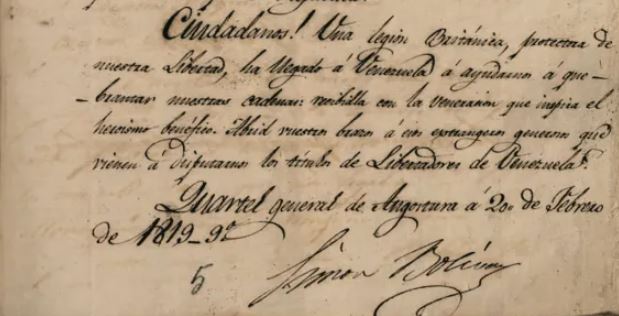 Ciudadanos! Una legion Británica, protectora de
nuestra Libertad, ha llegado á Venezuela á ayudarnos á que-
-brantar nuestras cadenas: recibidla con la veneracion que inspira el
heroismo benéfico. Abrid vuestros brazos á esos extrangeros generosos que
vienen á disputarnos los títulos de Libertadores de Venezuela.
Quartel general de Angostura á 20 de Febrero
de 1819-9º
5 Simon Bolívar